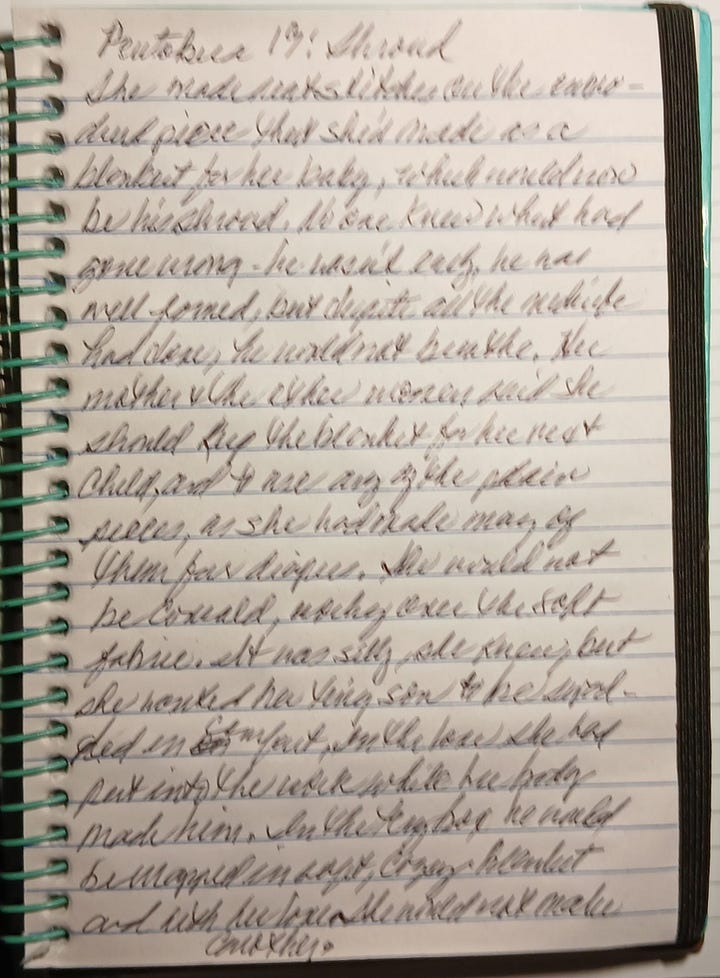 19: Shroud
She made neat stitches on the
piece that she'd made as a
blanket for her baby, which would now
be his shroud. No one knew what had
gone wrong - he wasn't early, he was
well formed, but despite all the midwife
had done, he would not breathe. Her
mother & the other women said she
should keep the blanket for her next
child, and to use any of the plain
pieces, as she had made many of
them for diapers. She would not
be, working over the soft
fabric. It was silly, she knew, but
she wanted her tiny son to be swad-
dled in comfort, in the love she had
put into the work while her body
made him. In the tiny box, he would
be wrapped in soft, cozy blanket
and with her love. She would not make
another.